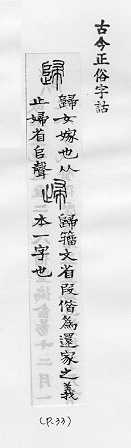 古今正俗字詁
歸
歸女嫁也从
止婦省𠂤聲
㱕
歸籀文省段借為還家之義
本一字也
(P.33)